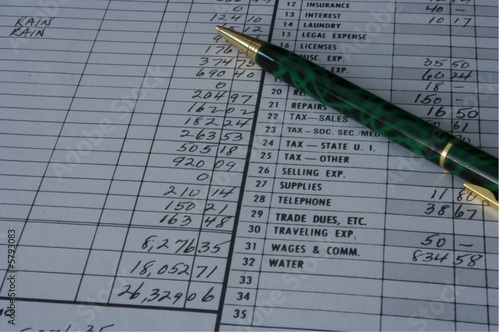 0
12 INSURANCE 40 –
RAIN 124 10
13 INTEREST 10 17
RAIN
14 LAUNDRY
15 LEGAL EXPENSE
16 LICENSES
374 75
MISC. EXP. 35 50
690 40
EXP. 60 24
0
18 –
204 97
20 150 –
167 02
21 REPAIRS 16 50
182 24
22 TAX—SALES 61
263 53
23 TAX – SOC. SEC./MED
505 18
24 TAX – STATE U. I.
920 09
25 TAX – OTHER
0
26 SELLING EXP.
210 14
27 SUPPLIES 11 80
150 21
28 TELEPHONE 38 67
163 48
29 TRADE DUES, ETC.
30 TRAVELING EXP. 50 –
8,276 35
31 WAGES & COMM. 834 58
18,052 71
32 WATER
33
26,329 06
34
35